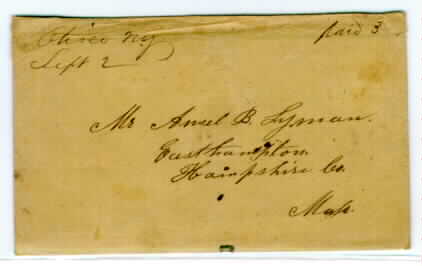 Otisco NY
paid 3
Sept 2
Mr Ansel B. Lyman.
Easthampton.
Hampshire Co.
Mass.